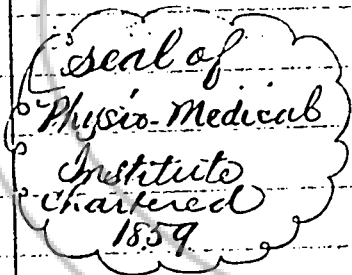 seal of
Physio-Medical
Institute
Chartered
1859.